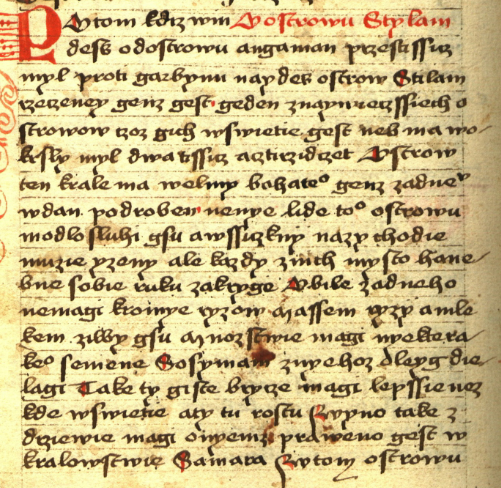 Potom kdiz win Oostrowu Stylam
dess odostrowu angaman przestissicz
myl proti garbynu naydess ostrow Stilam
rzeczeney genz gest geden znaywietssiech o
strowow czoz gich wswietie gest neb ma wo
kssly myl dwa tissicz acztirzidczet Ostrow
ten krale ma welmy bohateo genz zadneo
wdan podroben nenye lide too ostrowu
modlosluhi gsu awssiczkny nazy chodie
muzie yzeny ale kazdy znich mysto hane
bne sobie ruku zakryge Obile zadneho
nemagi kromye ryzow ayassem ryzy amle
kem ziwy gsu Ahozstwie magi nyektera
keo semene Sosyman znyehoz oleyg die
lagi Take ty giste bryrze magi lepssie nez
kde wswietie aty tu rostu Wyno take z
drziewie magi onyemz praweno gest w
kralowstwie Samara Wtom ostrowu